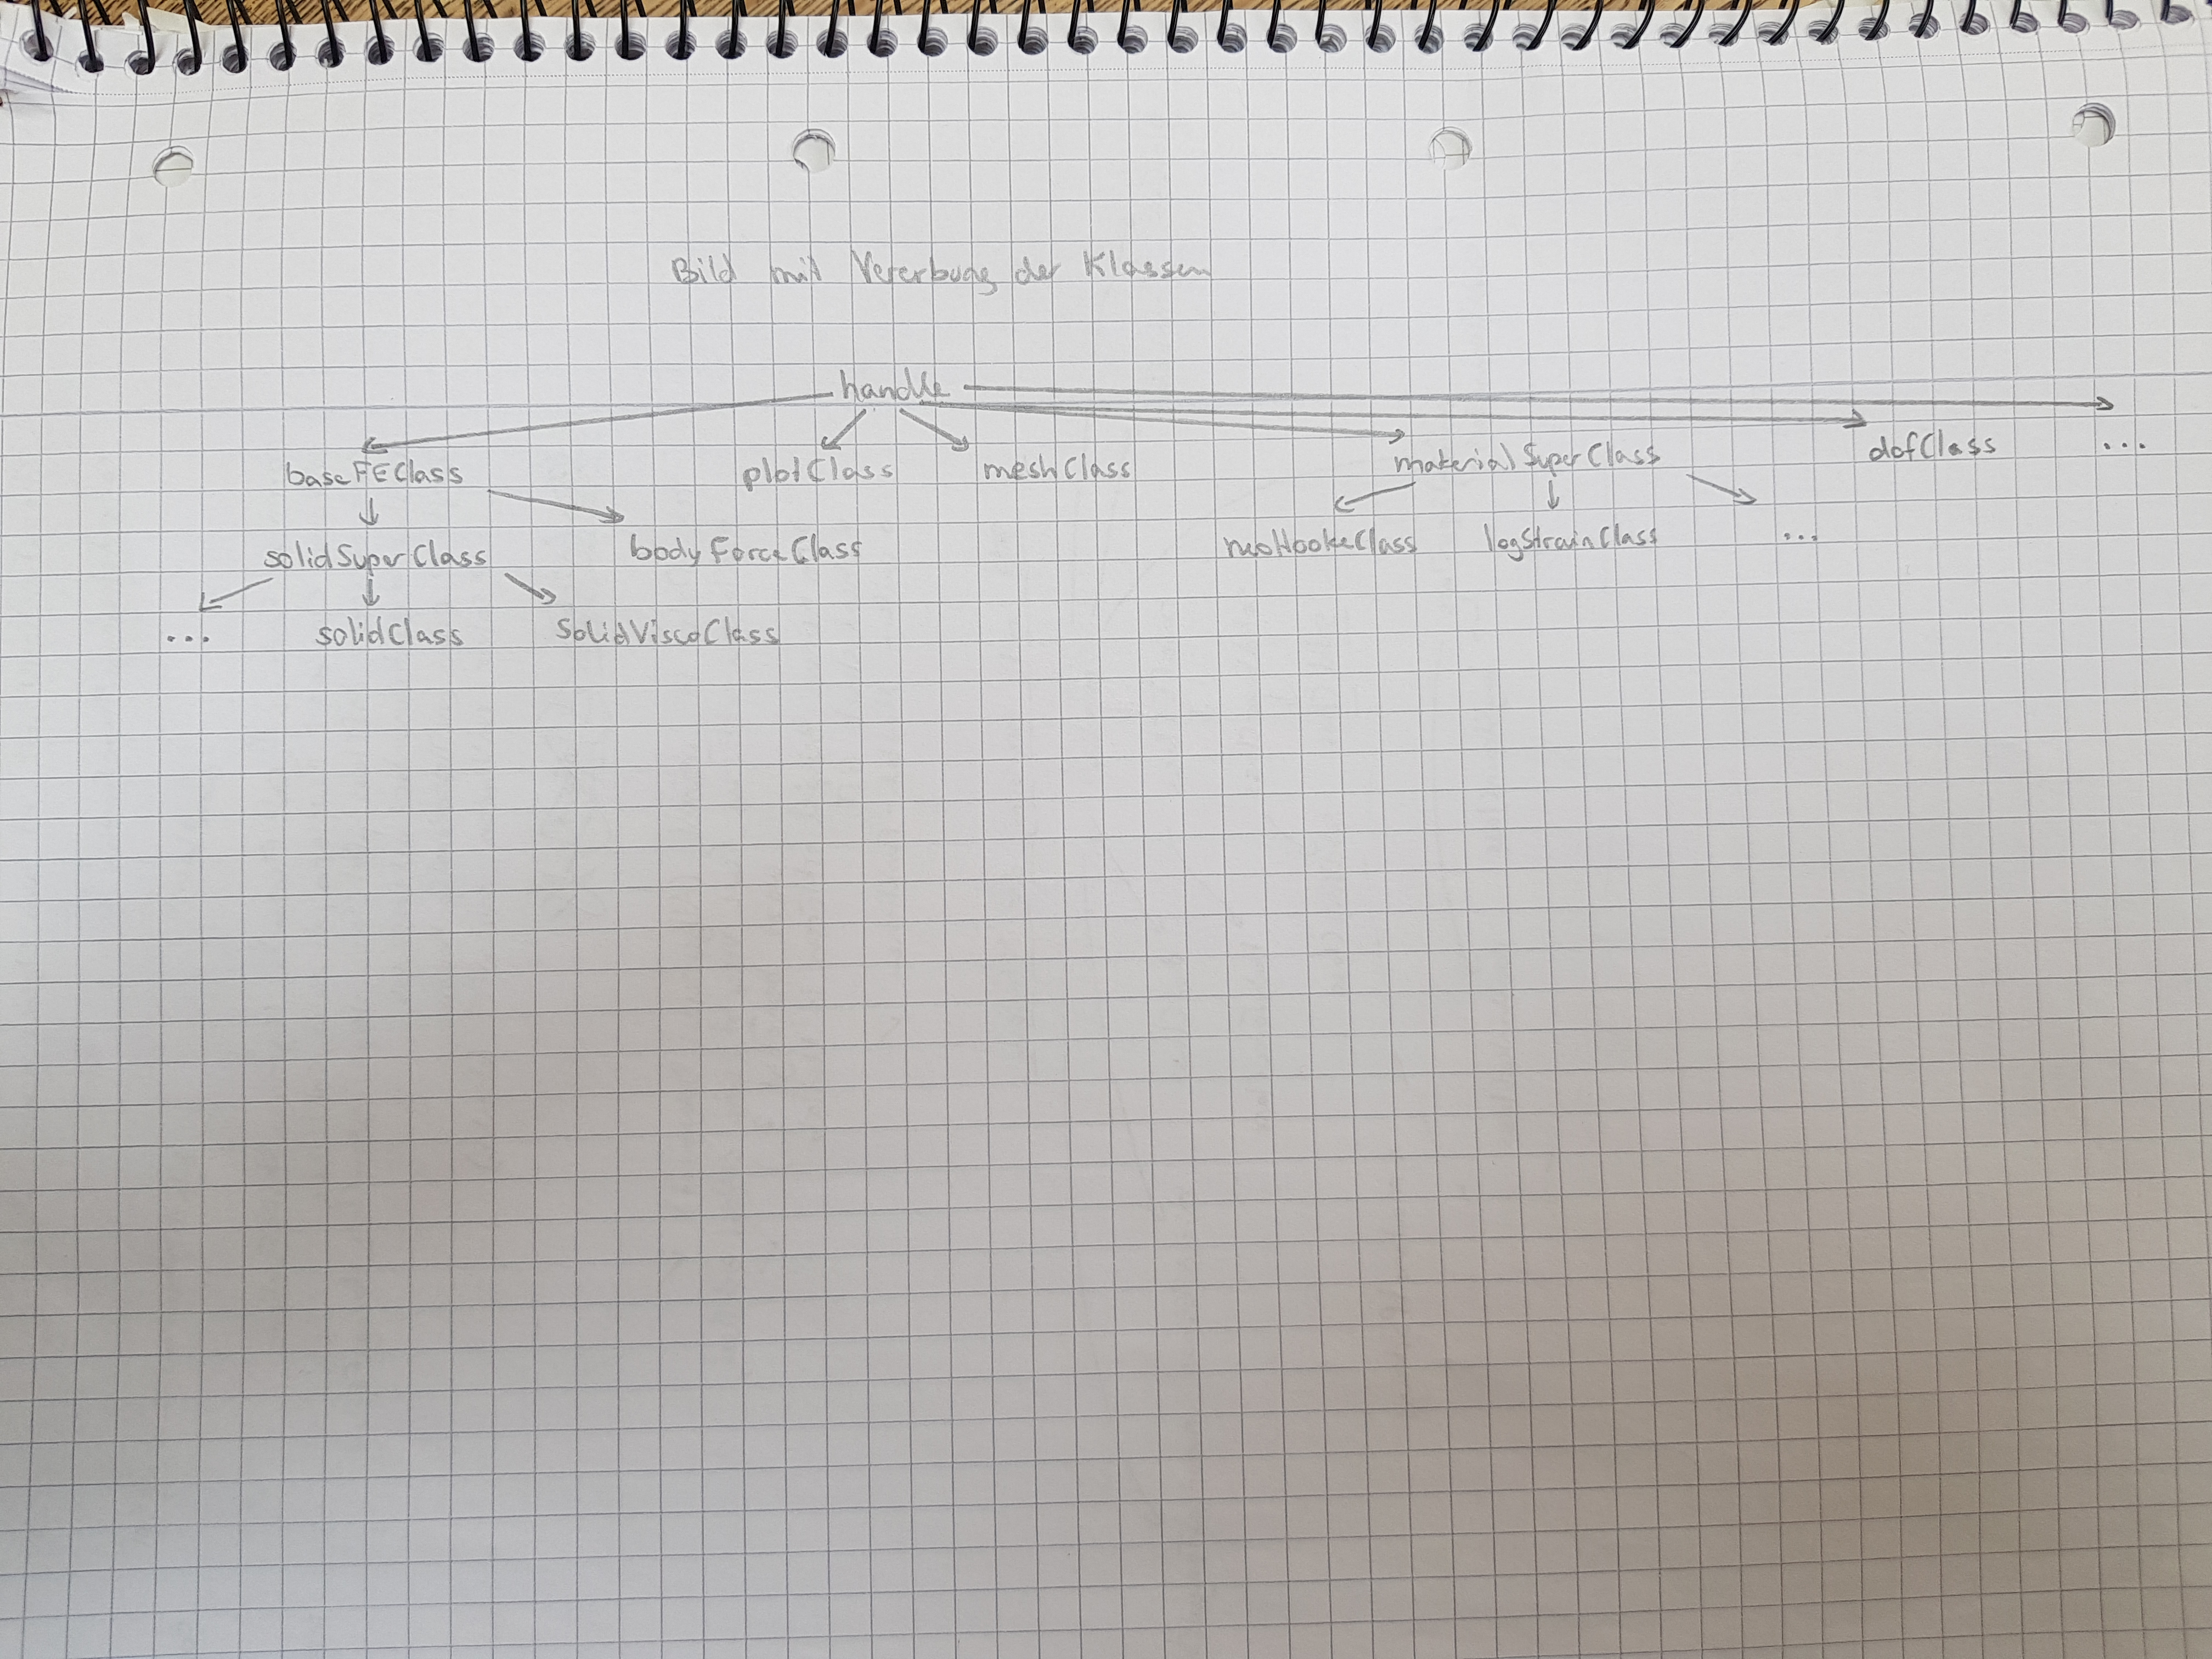 Bild mit Vererbung der Klassen
handle
baseFEClass plotClass meshClass materialSuperClass dofClass ...
solidSuperClass bodyForceClass neoHookeClass logStrainClass ...
... solidClass SolidViscoClass